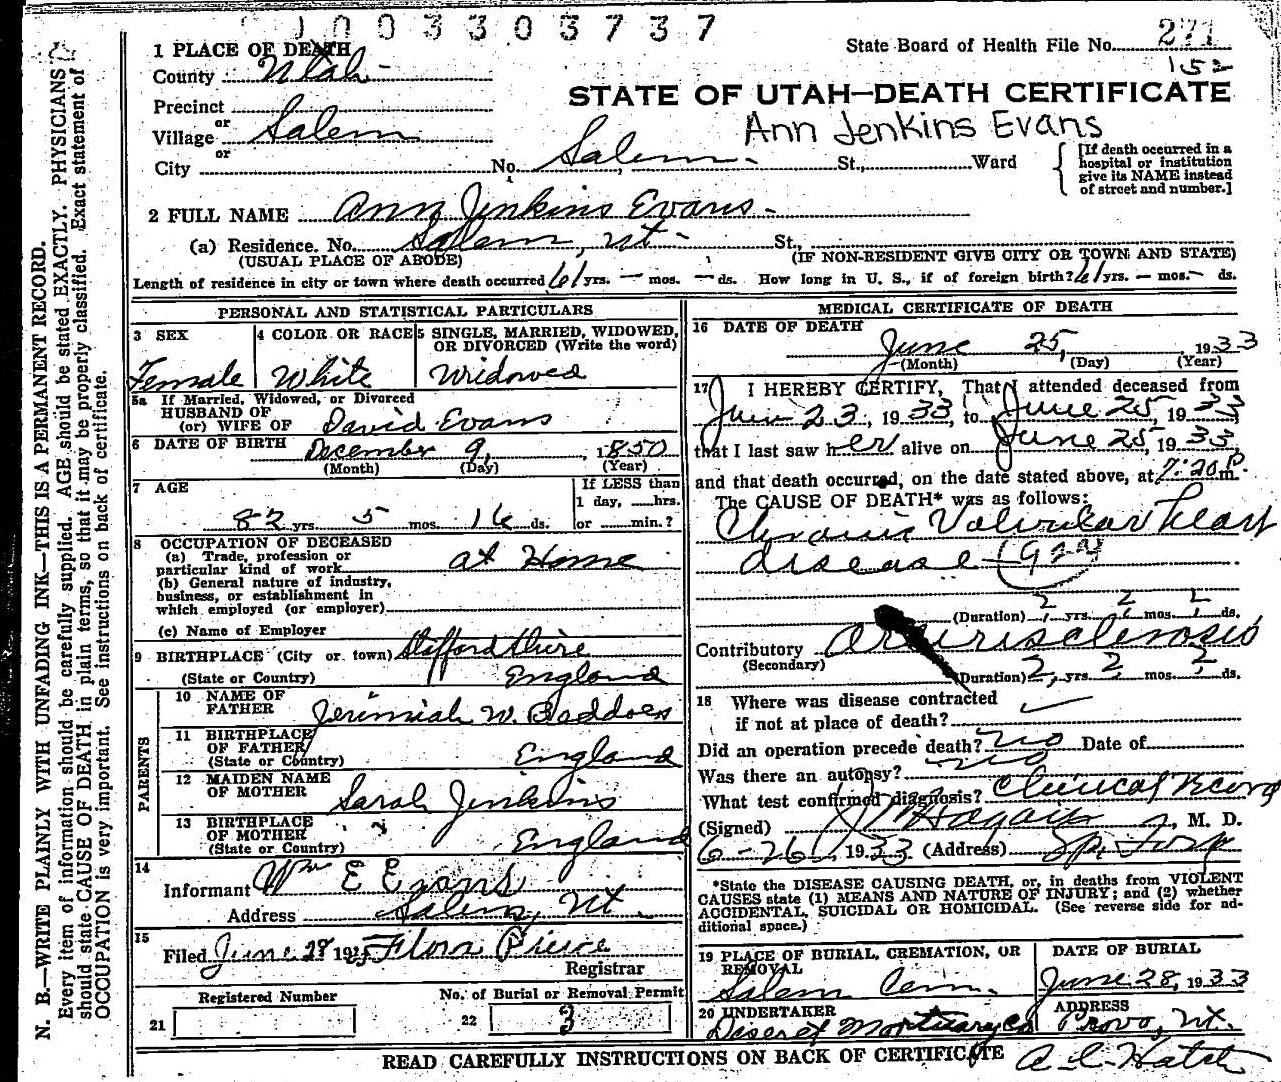 1003303737
271
State Board of Health File No.
152
STATE OF UTAH—DEATH CERTIFICATE
Ann Jenkins Evans
1 PLACE OF DEATH
County Utah
Precinct
or
Village Salem
or
City No. Salem St., Ward
[If death occurred in a hospital or institution give its NAME instead of street and number.]
2 FULL NAME Ann Jenkins Evans
(a) Residence. No. Salem, Ut St.,
(USUAL PLACE OF ABODE) (IF NON-RESIDENT GIVE CITY OR TOWN AND STATE)
Length of residence in city or town where death occurred 61 yrs. — mos. — ds. How long in U. S., if of foreign birth? 61 yrs. — mos. — ds.
PERSONAL AND STATISTICAL PARTICULARS
3 SEX
Female
4 COLOR OR RACE
White
5 SINGLE, MARRIED, WIDOWED,
OR DIVORCED (Write the word)
Widowed
5a If Married, Widowed, or Divorced
HUSBAND OF
(or) WIFE OF David Evans
6 DATE OF BIRTH December 9, 1850
(Month) (Day) (Year)
7 AGE
82 yrs 5 mos. 16 ds.
If LESS than
1 day, ......hrs.
or ......min.?
8 OCCUPATION OF DECEASED
(a) Trade, profession or
particular kind of work at Home
(b) General nature of industry,
business, or establishment in
which employed (or employer)
(c) Name of Employer
9 BIRTHPLACE (City or town) Staffordshire
(State or Country) England
PARENTS
10 NAME OF
FATHER Jerimiah W. Baddoes
11 BIRTHPLACE
OF FATHER
(State or Country) England
12 MAIDEN NAME
OF MOTHER Sarah Jenkins
13 BIRTHPLACE
OF MOTHER
(State or Country) England
14
Informant Wm E Evans
Address Salem, Ut
15
Filed June 28 1933 Flora Pierce
Registrar
Registered Number
21
No. of Burial or Removal Permit
22 3
MEDICAL CERTIFICATE OF DEATH
16 DATE OF DEATH
June 25, 1933
(Month) (Day) (Year)
17 I HEREBY CERTIFY, That I attended deceased from
June 23, 1933, to June 25, 1933
that I last saw her alive on June 25, 1933,
and that death occurred, on the date stated above, at 7:20 P.m.
The CAUSE OF DEATH* was as follows:
Chronic Valvular Heart
disease (92a)
(Duration) 2 yrs. 2 mos. 2 ds.
Contributory Arteriosclerosis
(Secondary)
(Duration) 2, yrs. 2 mos. 2 ds.
18 Where was disease contracted
if not at place of death?
Did an operation precede death? no Date of
Was there an autopsy? no
What test confirmed diagnosis? Clinical Record
(Signed) , M. D.
6-26, 1933 (Address) Sp. Fork
*State the DISEASE CAUSING DEATH, or, in deaths from VIOLENT
CAUSES state (1) MEANS AND NATURE OF INJURY; and (2) whether
ACCIDENTAL, SUICIDAL OR HOMICIDAL. (See reverse side for ad-
ditional space.)
19 PLACE OF BURIAL, CREMATION, OR
REMOVAL
Salem Cem.
DATE OF BURIAL
June 28, 1933
20 UNDERTAKER
Deseret Mortuary Co
ADDRESS
Provo, Ut.
READ CAREFULLY INSTRUCTIONS ON BACK OF CERTIFICATE A. C. Hatch
N. B.—WRITE PLAINLY WITH UNFADING INK—THIS IS A PERMANENT RECORD.
Every item of information should be carefully supplied. AGE should be stated EXACTLY. PHYSICIANS
should state CAUSE OF DEATH in plain terms, so that it may be properly classified. Exact statement of
OCCUPATION is very important. See instructions on back of certificate.